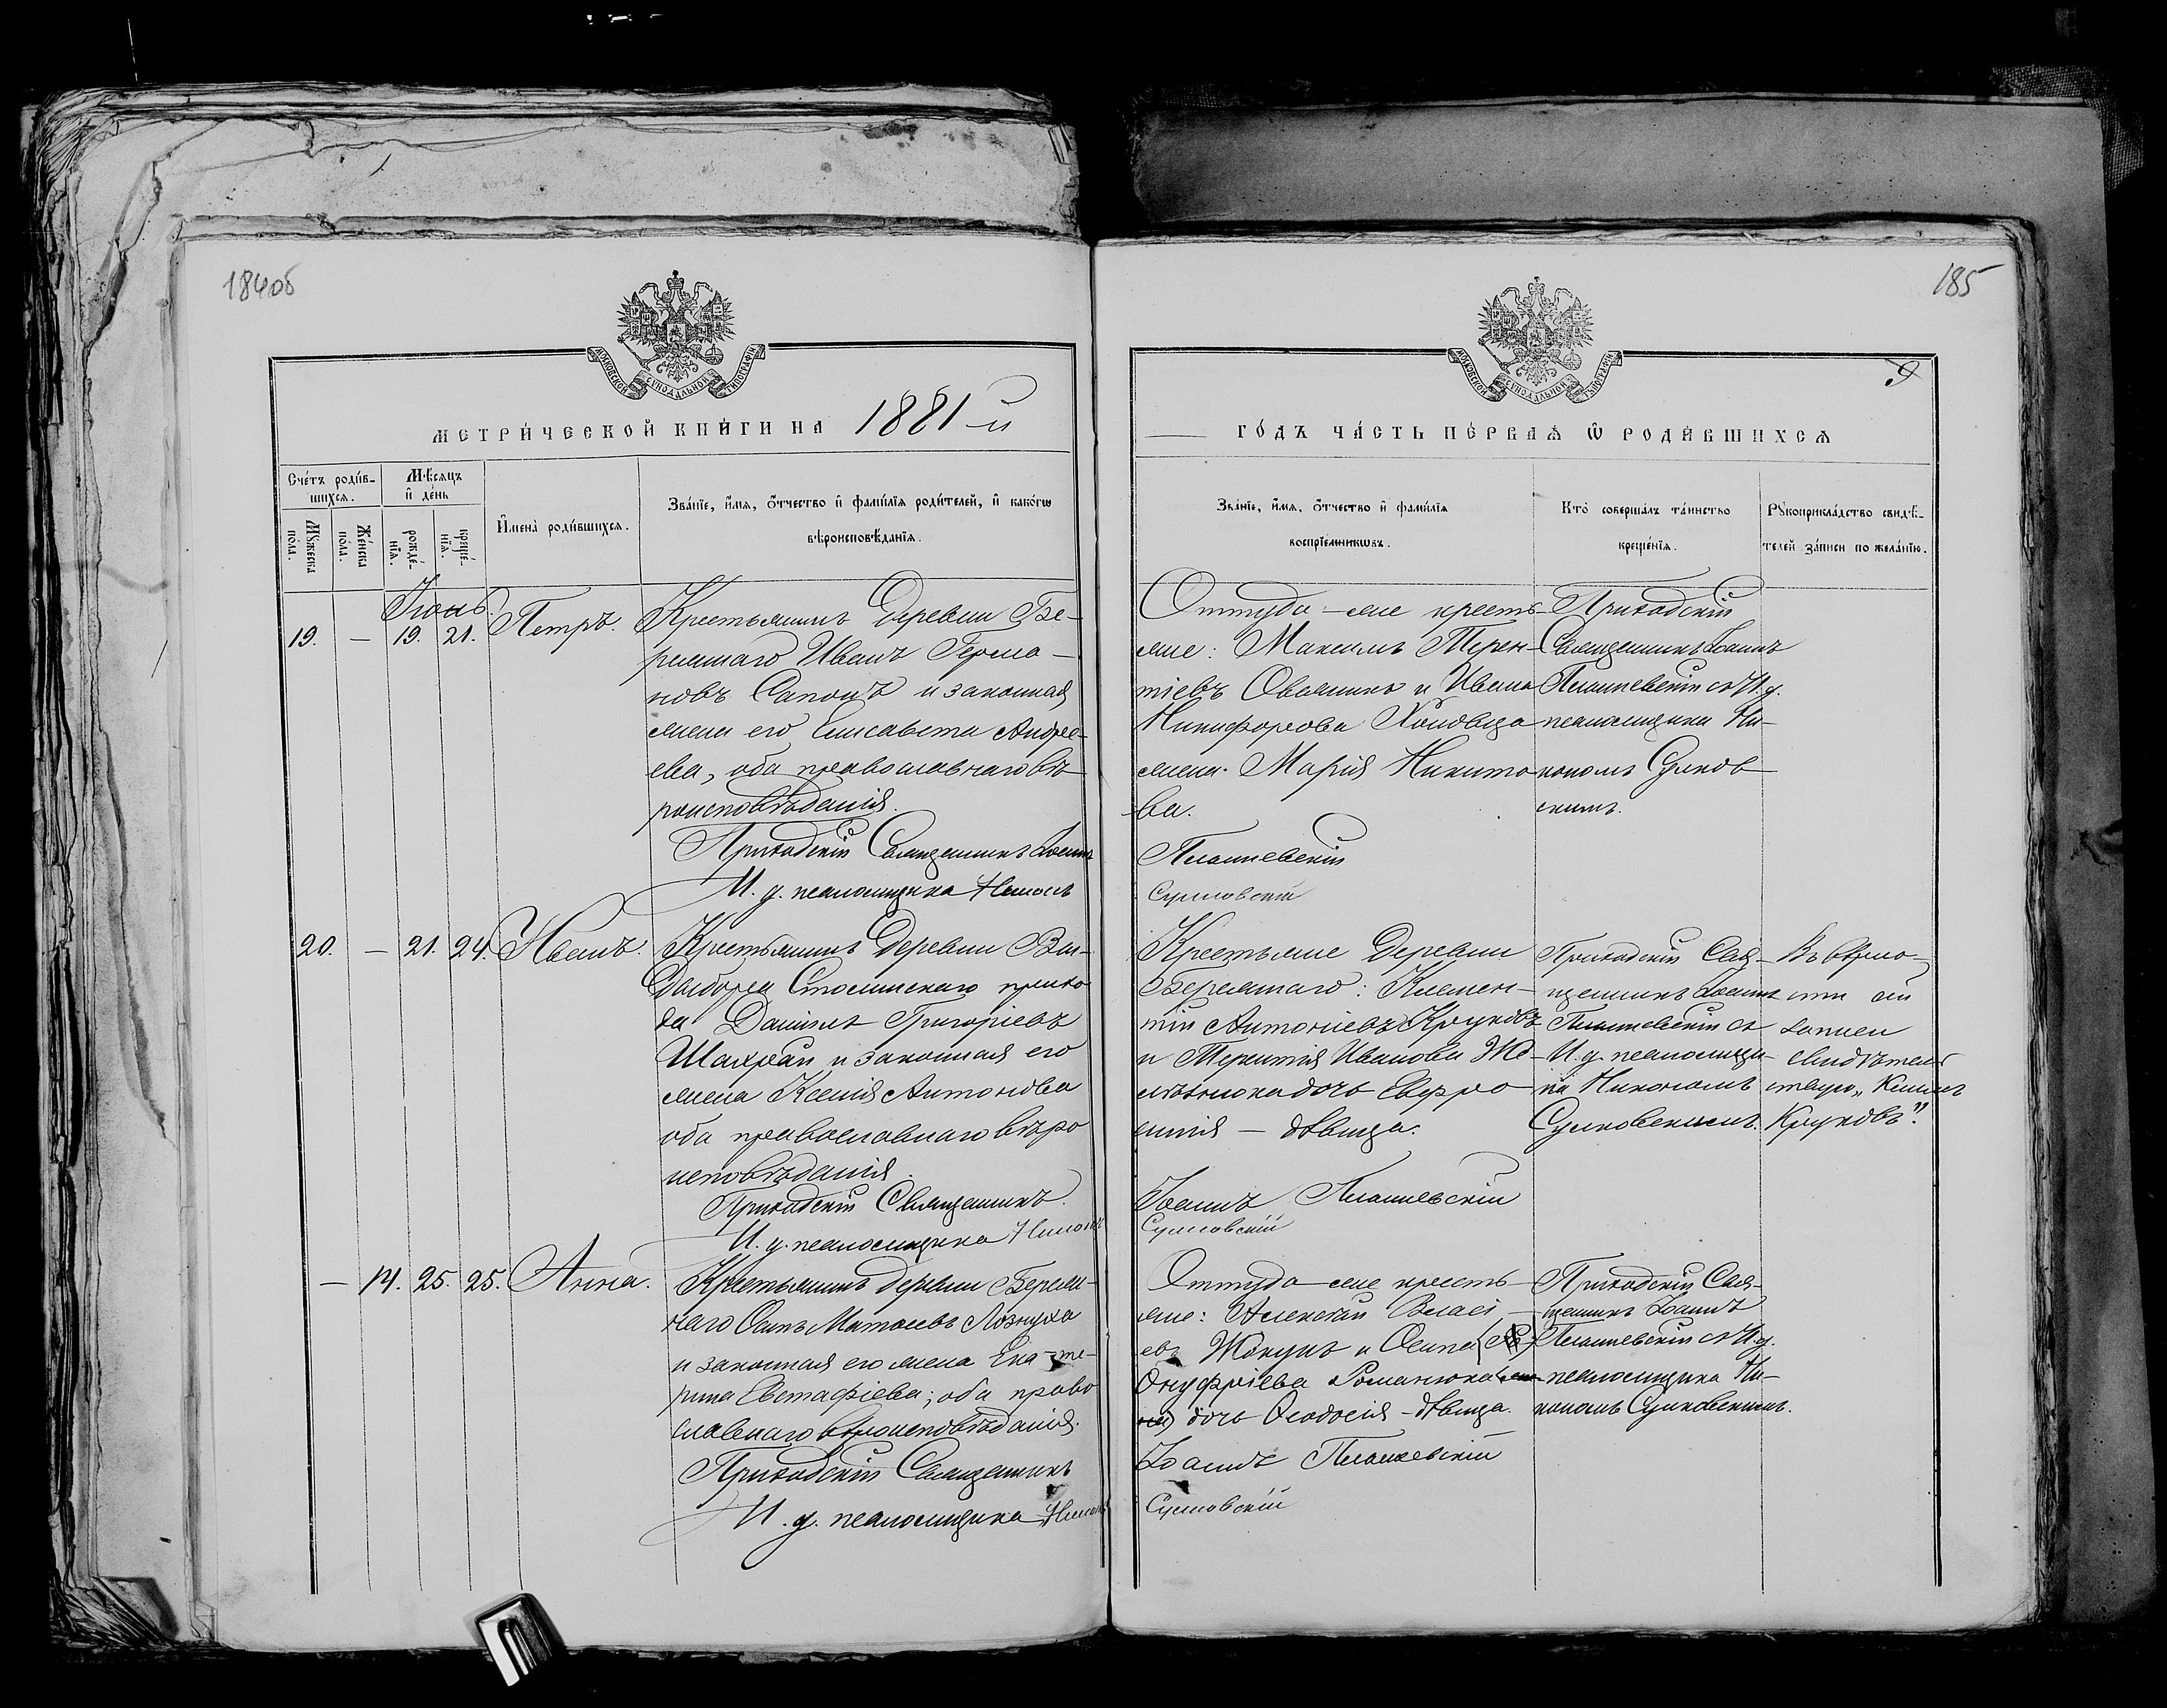 184об
185
9
МОСКОВСКОЙ СѴНОДАЛЬНОЙ ТИПОГРАФІИ
МОСКОВСКОЙ СѴНОДАЛЬНОЙ ТИПОГРАФІИ
МЕТРИ́ЧЕСКОЙ КНИ́ГИ НА 1881-й
ГО́ДЪ ЧА́СТЬ ПЕ́РВАѦ Ѡ҆ РОДИ́ВШИХСѦ
Сче́тъ роди́в-
шихсѧ.
Мꙋ́жеска по́ла.
Же́нска по́ла.
Мѣ́сѧцъ
и҆ де́нь
рожде́-нїѧ.
креще́-нїѧ.
И҆мена̀ роди́вшихсѧ.
Зва́нїе, и҆́мѧ, ѻ҆́тчество и҆ фамі́лїѧ роди́телей, и҆ како́гѡ
вѣроисповѣ́данїѧ.
Зва́нїе, и҆́мѧ, ѻ҆́тчество и҆ фамі́лїѧ
воспрїе́мникѡвъ.
Кто̀ соверша́лъ та́инство
креще́нїѧ.
Рꙋкоприкла́дство свидѣ́-
телей за́писи по жела́нїю.
Іюнь.
19. — 19. 21. Петръ.
Крестьянинъ деревни Бе-
режнаго Иванъ Герма-
новъ Сапонъ и законная
жена его Елисавета Андре-
ева, оба православнаго вѣ-
роисповѣданія.
Приходскій Священникъ Іоаннъ
И. д. псаломщика Никонъ
Оттуда-же кресть-
яне: Максимъ Терен-
тіевъ Овсяникъ и Ивана
Никифорова
жена Марія Никито-
ва.
Приходскій
Священникъ Іоаннъ
съ И. д.
псаломщика Ни-
кономъ Сулков-
скимъ.
20. — 21. 24. Иванъ.
Крестьянинъ деревни
Столинскаго прихо-
да Даніилъ Григоріевъ
и законная его
жена Ксенія Антонова
оба православнаго вѣро
исповѣданія.
Приходскій Священникъ
И. д. псаломщика Никонъ
Крестьяне деревни
Бережнаго: Климен-
тій Антоніевъ Круковъ
и Терентія Иванова
дочь Евфро
синія — дѣвица.
Іоаннъ
Приходскій Свя-
щенникъ Іоаннъ
съ
И. д. псаломщи-
ка Никономъ
Сулковскимъ.
Въ вѣрно-
сти сей
записи
свидѣтель
ствую „
Круковъ".
— 14. 25. 25. Анна.
Крестьянинъ деревни Береж-
наго Осипъ Матѳеевъ
и законная его жена Ека-те-
рина Евстафіева; оба право
славнаго вѣроисповѣданія.
Приходскій Священникъ
И. д. псаломщика Никонъ
Оттуда-же кресть-
яне: Алексѣй Власі-
евъ Жокунъ и Осипа
Онуфріева Романюка
дочь Ѳеодосія — дѣвица.
Іоаннъ
Приходскій Свя-
щенникъ Іоаннъ
съ И. д.
псаломщика Ни-
кономъ Сулковскимъ.